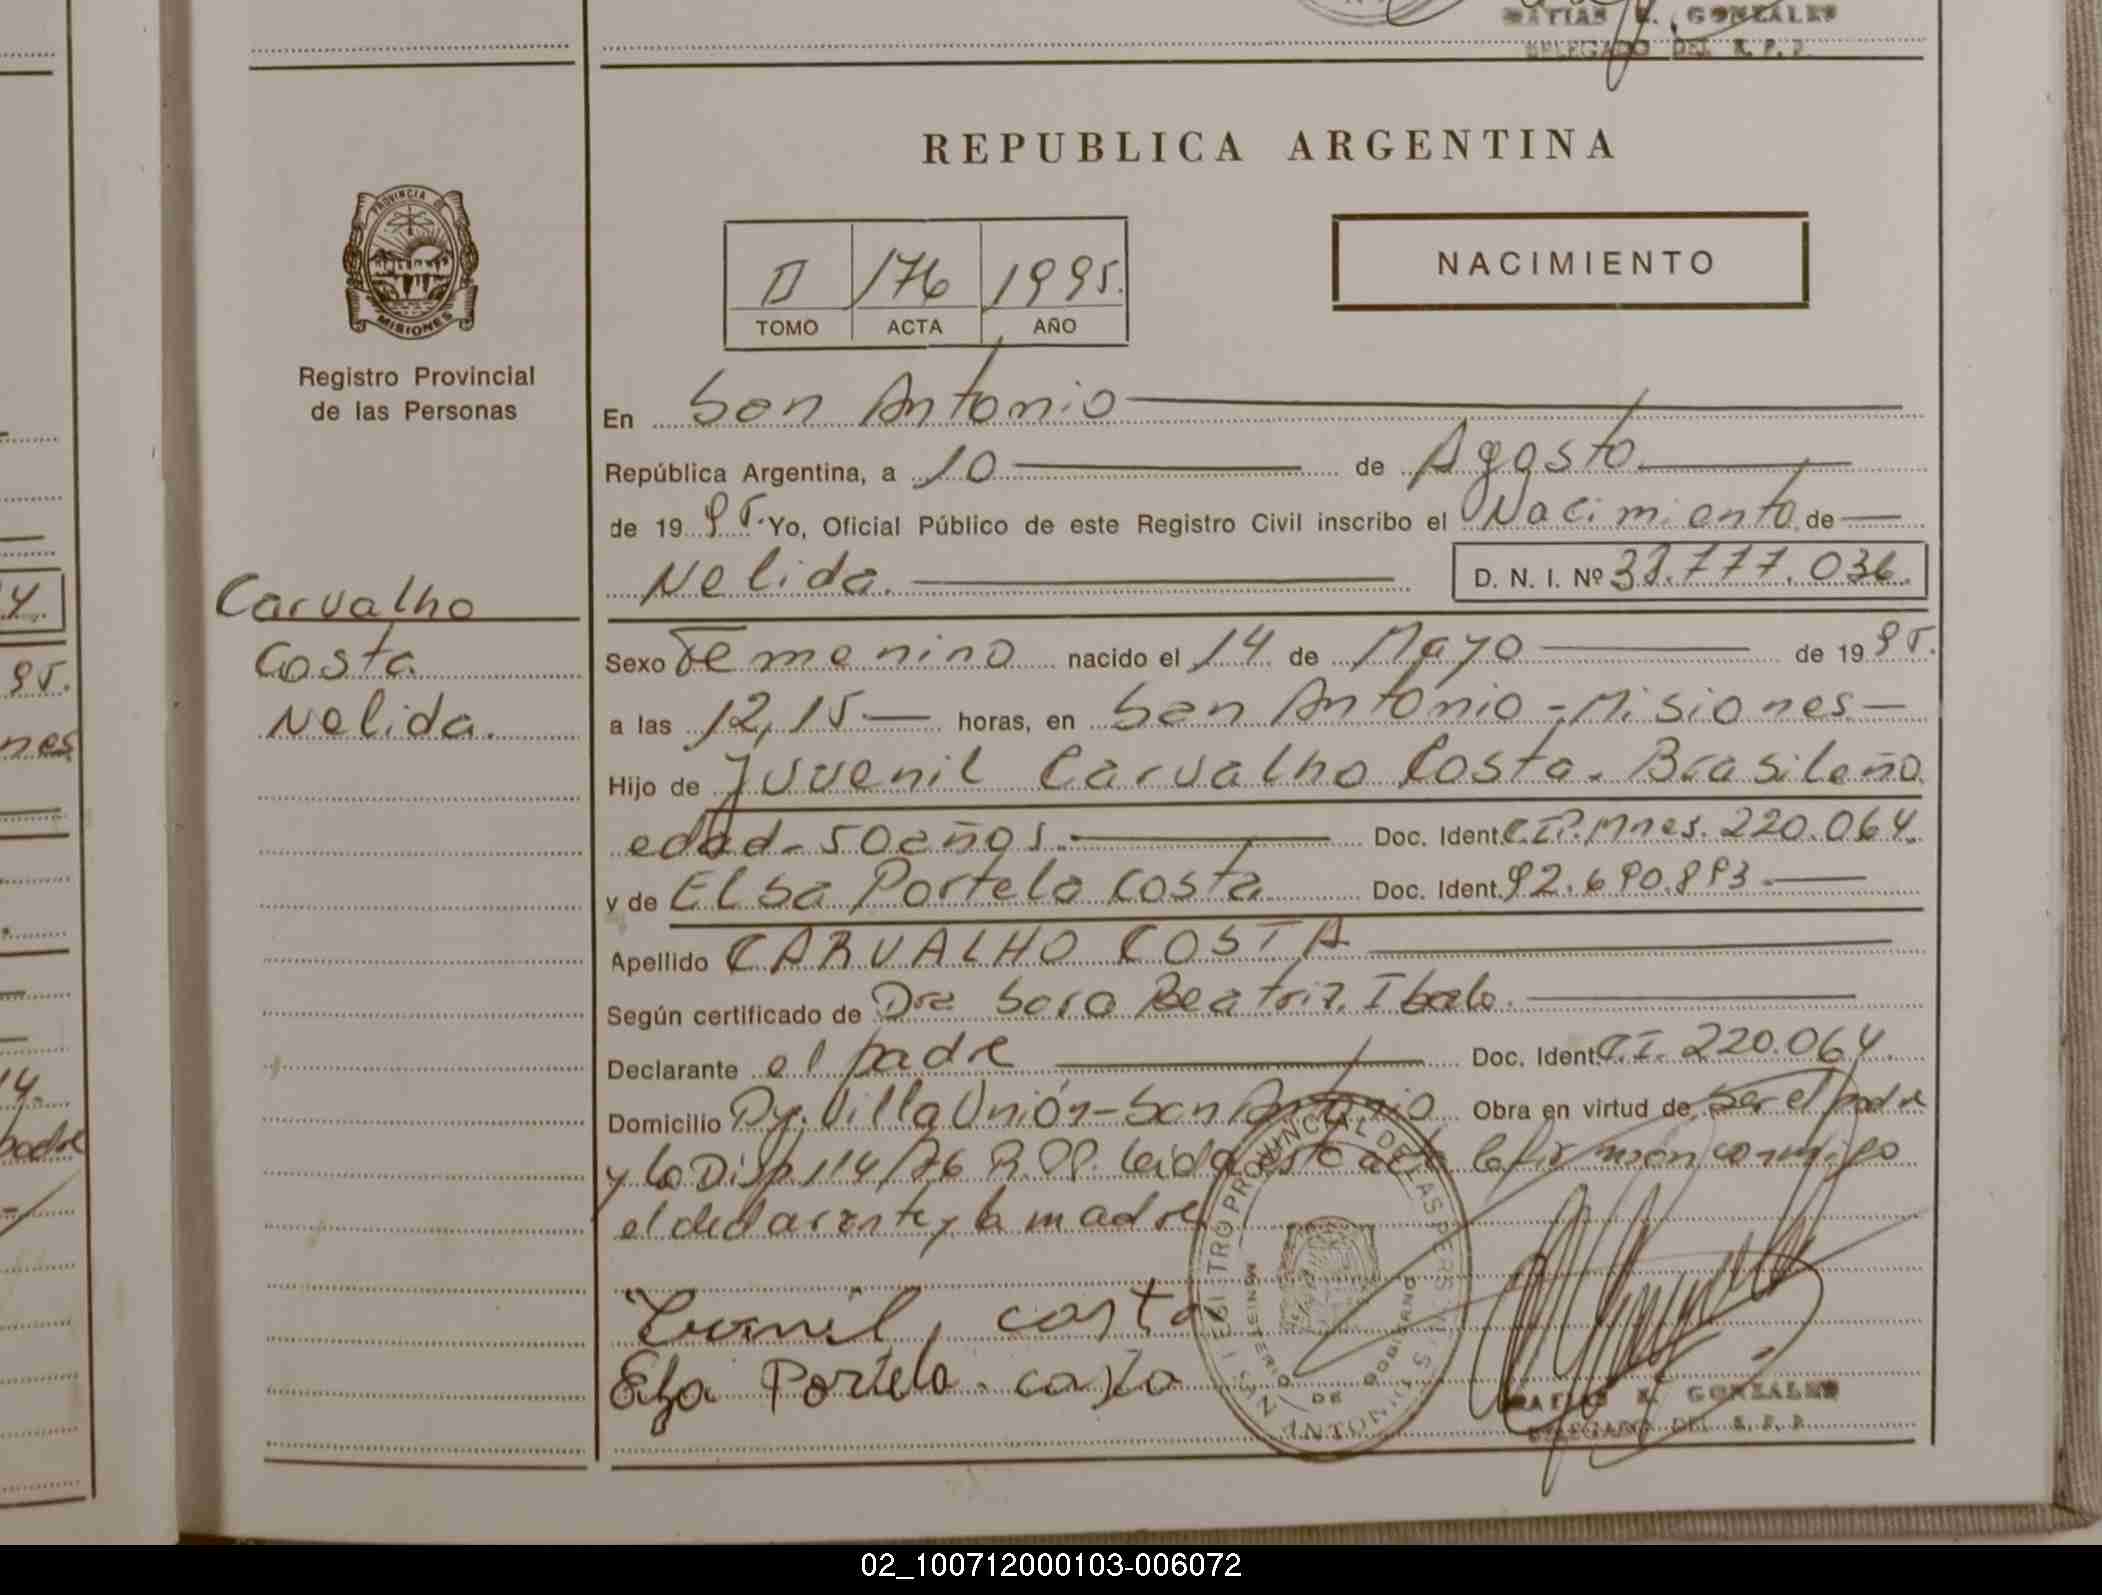 MATIAS E. GONZALES
DELEGADO DEL R. P. P.
REPUBLICA ARGENTINA
PROVINCIA DE
MISIONES
Registro Provincial
de las Personas
II 176 1995.
TOMO ACTA AÑO
NACIMIENTO
En San Antonio
República Argentina, a 10 de Agosto
de 1995. Yo, Oficial Público de este Registro Civil inscribo el Nacimiento de
Nelida. D. N. I. Nº 38.777.036.
Carvalho
Costa
Nelida.
Sexo Femenino nacido el 14 de Mayo de 1995.
a las 12,15 horas, en San Antonio - Misiones
Hijo de Juvenil Carvalho Costa. Brasileño
edad - 50 años. Doc. Ident. C.I.P. Mnes. 220.064.
y de Elsa Portela Costa Doc. Ident. 92.690.893.
Apellido CARVALHO COSTA
Según certificado de Dra Sara Beatriz
Declarante el padre Doc. Ident. C.I. 220.064.
Domicilio Py. Villa Unión - San Antonio Obra en virtud de ser el padre
y la Disp. 114/76 R.P.P. leida esta acta la firman conmigo
el declarante y la madre
REGISTRO PROVINCIAL DE LAS PERSONAS
MINISTERIO DE GOBIERNO
SAN ANTONIO
Juvenil, costa
Elza Portela. costa
MATIAS E. GONZALES
DELEGADO DEL R. P. P.
4.
95.
nes
14.
padre
02_100712000103-006072